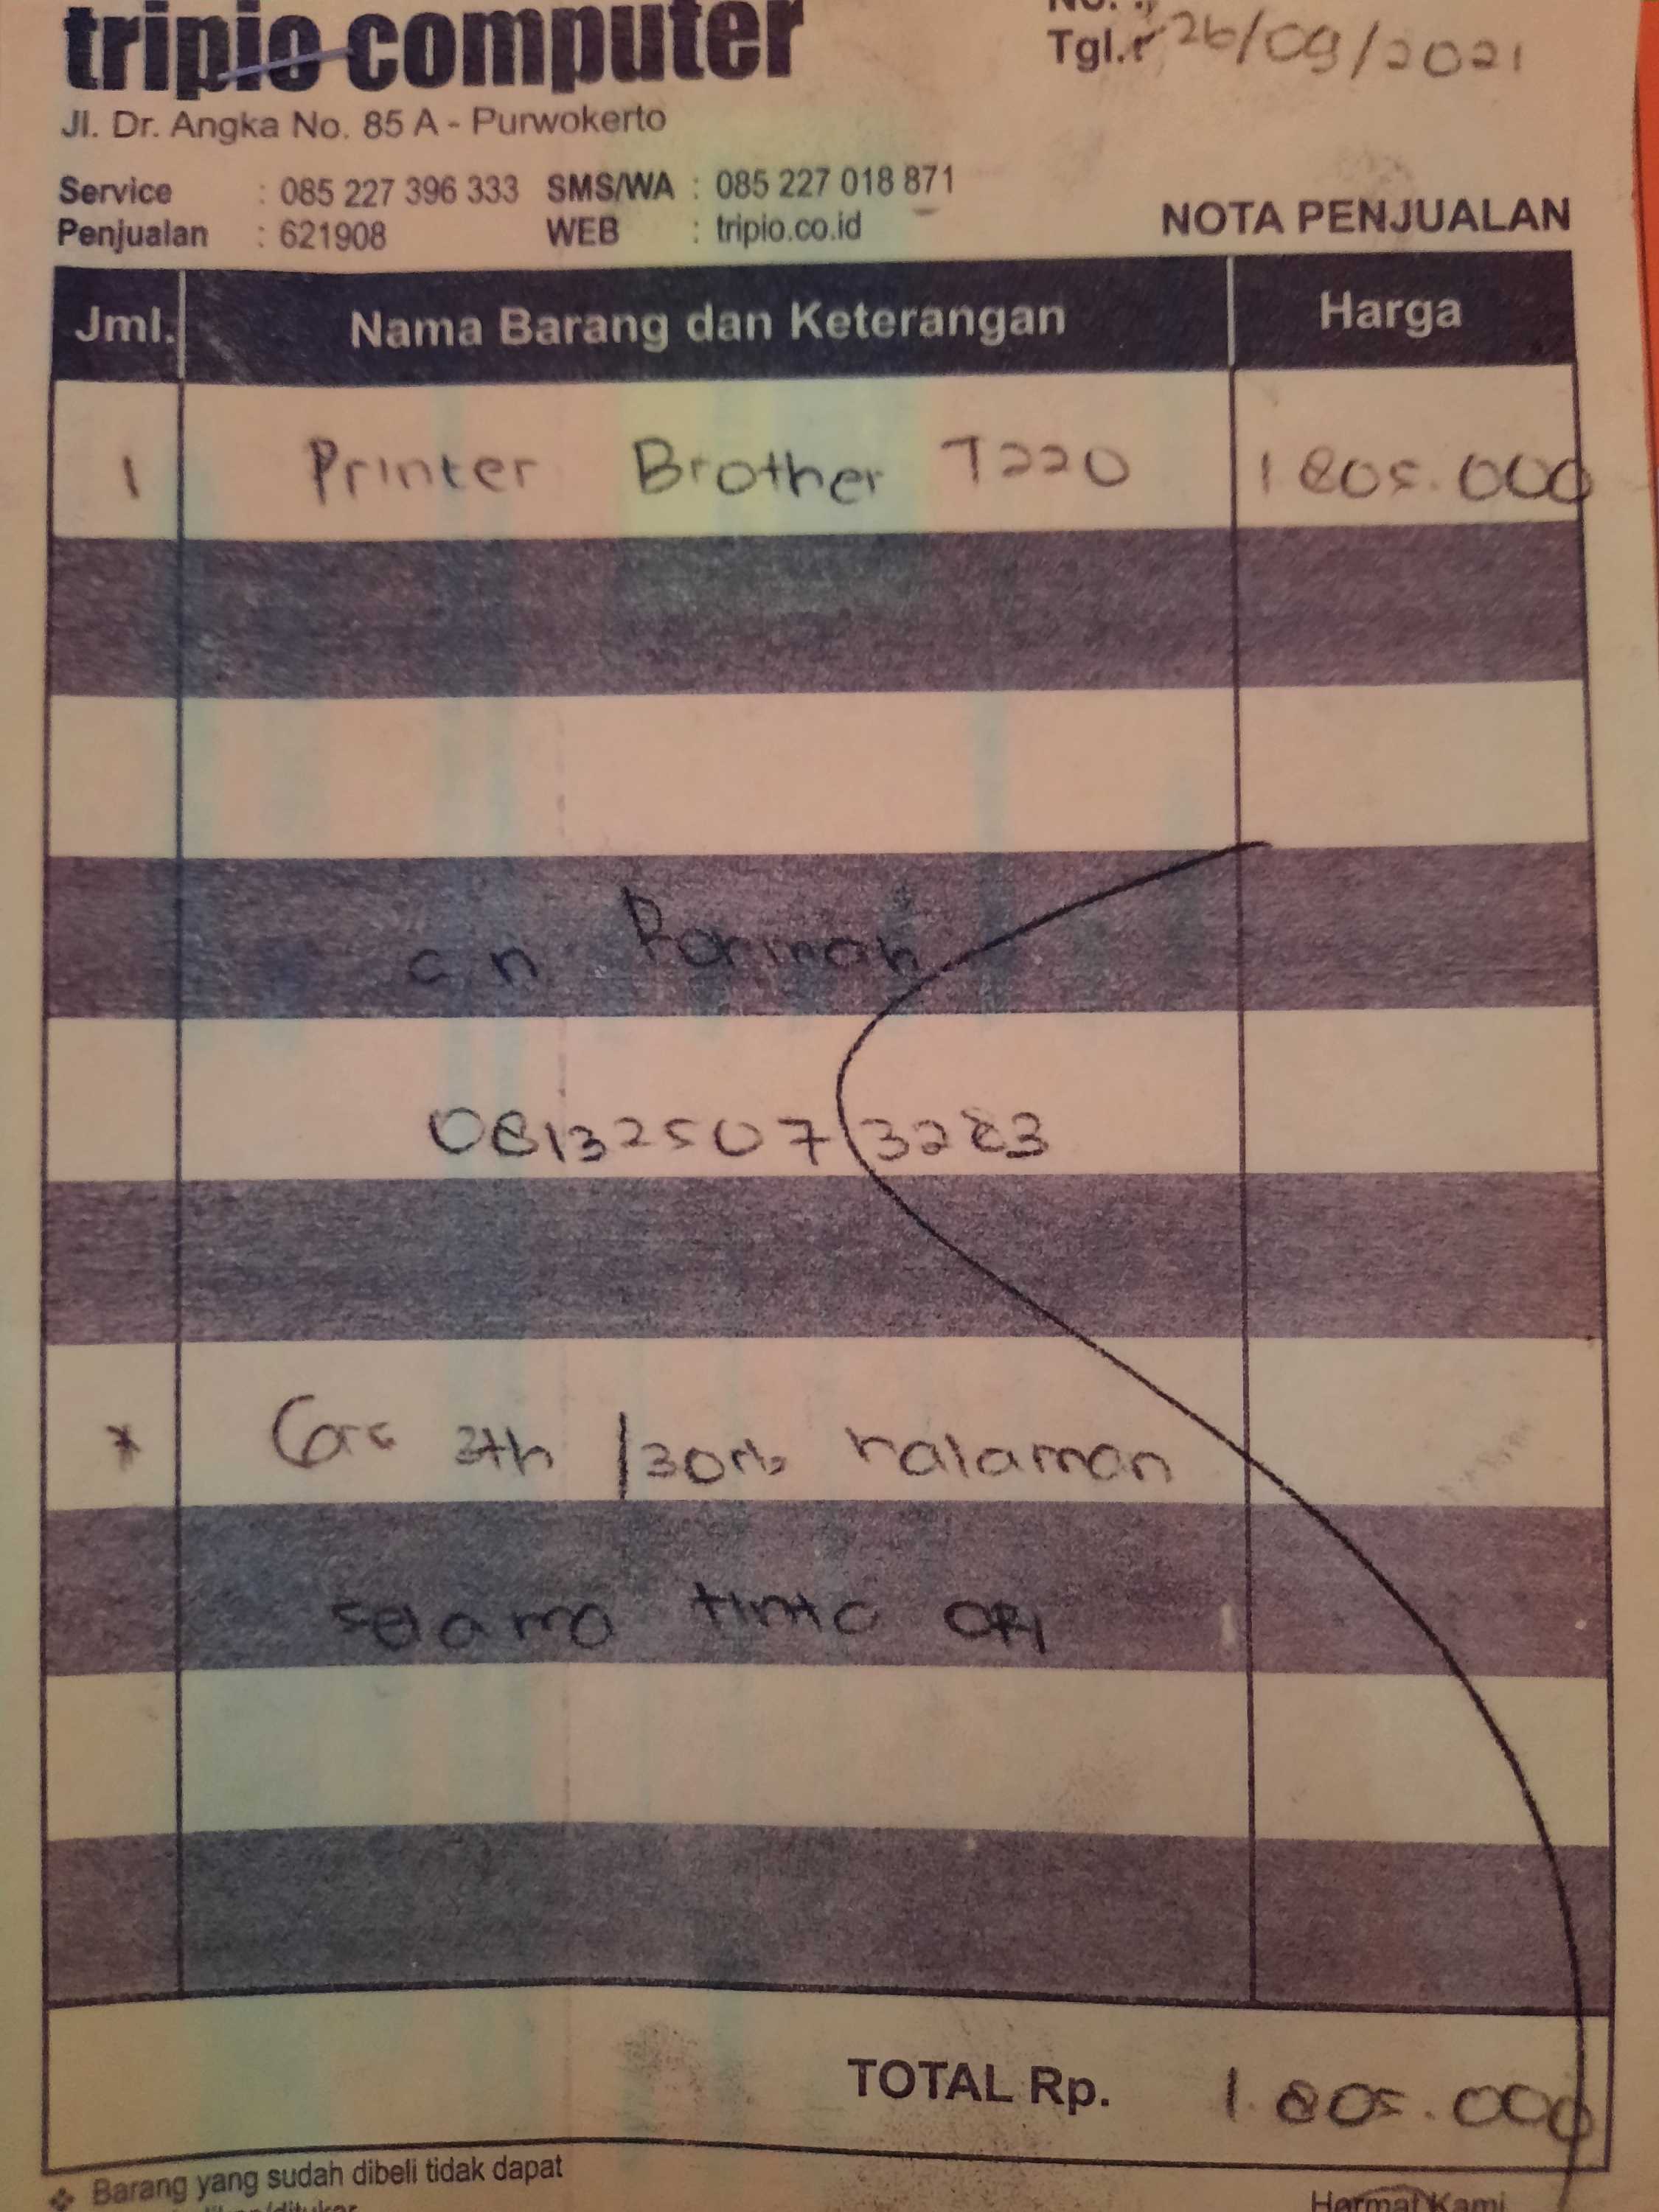 tripio computer
No. :
Tgl. : 26/09/2021
Jl. Dr. Angka No. 85 A - Purwokerto
Service : 085 227 396 333 SMS/WA : 085 227 018 871
Penjualan : 621908 WEB : tripio.co.id
NOTA PENJUALAN
Jml. Nama Barang dan Keterangan Harga
1 Printer Brother T220 1.805.000
a.n Parmah
081325073283
* Gar 3th /30rb halaman
selama tinta ori
TOTAL Rp. 1.805.000
❖ Barang yang sudah dibeli tidak dapat
Hormat Kami